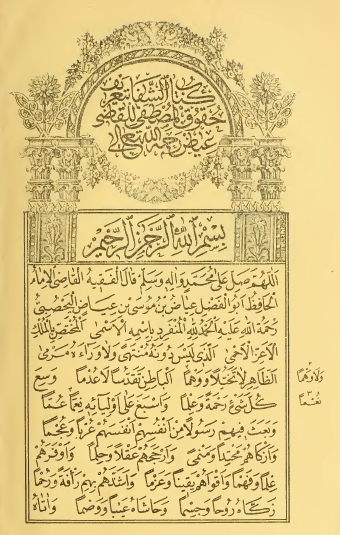 كتاب الشفا بتعريف
حقوق المصطفى للقاضي
عياض رحمه الله تعالى
بسم الله الرحمن الرحيم
اللهم صل على محمد واله وسلم قال الفقيه القاضى الامام
الحافظ ابو الفضل عياض بن موسى بن عياض اليحصبى
رحمة الله عليه الحمد لله المنفرد باسمه الاسمى المختص بالملك
الاعز الاحمى الذى ليس دونه منتهى ولا وراءه مرمى
الظاهر لا تخيلا ووهما الباطن تقدسا لا عدما وسع
كل شىء رحمة وعلما واسبغ على اوليائه نعما عما
وبعث فيهم رسولا من انفسهم انفسهم عربا وعجما
وازكاهم محتدا ومنمى وارجحهم عقلا وحلما واوفرهم
علما وفهما واقواهم يقينا وعزما واشدهم بهم رافة ورحما
زكاه روحا وجسما وحاشاه عيبا ووصما واتاه
ولا وهما
نعما